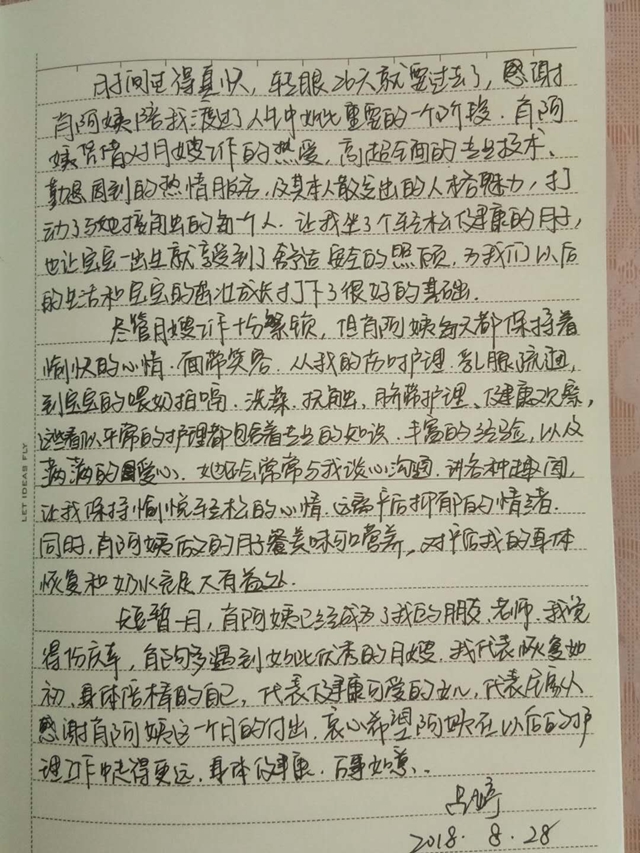 时间过得真快，轻眼26天就要过去了，感谢
肖阿姨陪我渡过了人生中如此重要的一个阶段．肖阿
姨凭借对月嫂工作的热爱，高超全面的专业技术、
勤恳周到的热情服务，及其本人散发出的人格魅力，打
动了与她接触的每一个人．让我坐了个轻松健康的月子，
也让宝宝一出生就享受到了舒适安全的照顾，为我们以后
的生活和宝宝的茁壮成长打下了很好的基础．
尽管月嫂工作十分繁琐，但肖阿姨每天都保持着
愉快的心情．面带笑容．从我的伤口护理．乳腺疏通，
到宝宝的喂奶拍嗝．洗澡．抚触．脐带护理、健康观察，
这些看似平常的护理都包含着专业的知识．丰富的经验，以及
满满的爱心．她还会常常与我谈心沟通．讲各种趣闻，
让我保持愉悦轻松的心情．远离产后抑郁的情绪．
同时，肖阿姨的月子餐美味可口营养，对产后我的身体
恢复和奶水充足大有益处．
短暂一月，肖阿姨已经成为了我的朋友、老师．我觉
得很庆幸，有阿多遇到如此优秀的月嫂．我代表恢复如
初．身体倍棒的自己，代表健康可爱的女儿，代表家人
感谢肖阿姨这一个月的付出．衷心希望阿姨在以后的护
理工作中走得更远．身体健康．万事如意．
吕婷
2018.8.28
LET IDEAS FLY